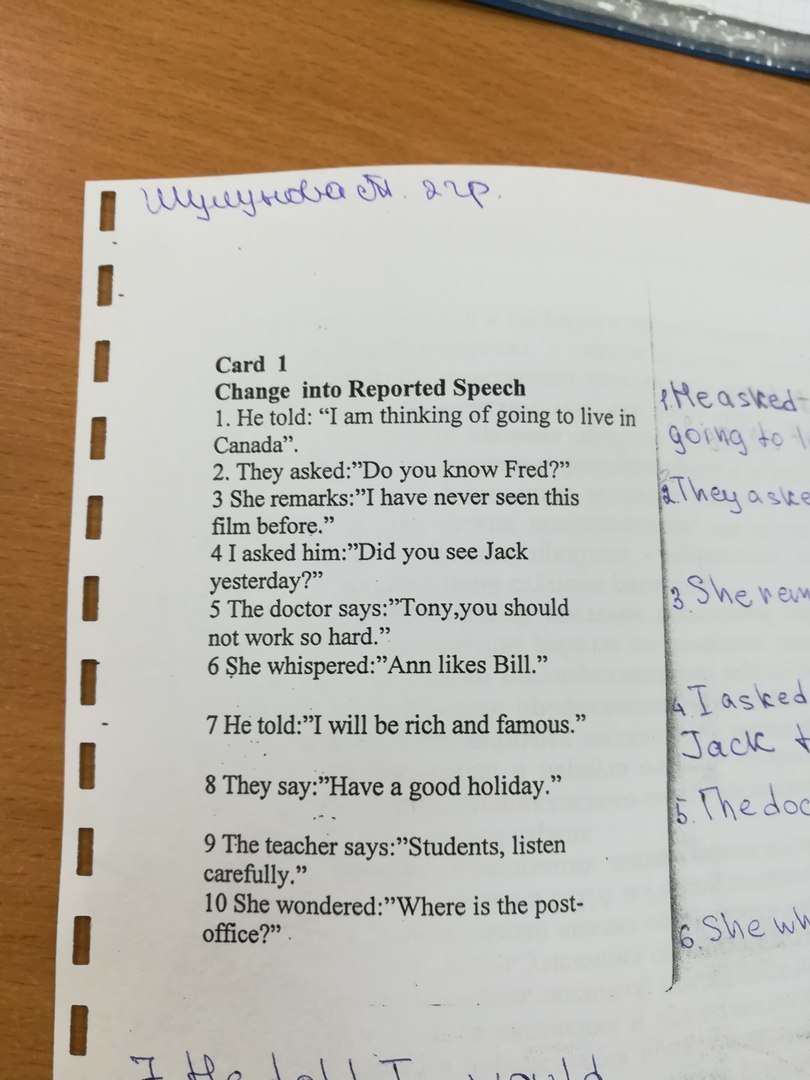 Шулунова А. 2 гр.
Card 1
Change into Reported Speech
1. He told: “I am thinking of going to live in
Canada”.
2. They asked:”Do you know Fred?”
3 She remarks:”I have never seen this
film before.”
4 I asked him:”Did you see Jack
yesterday?”
5 The doctor says:”Tony,you should
not work so hard.”
6 She whispered:”Ann likes Bill.”
7 He told:”I will be rich and famous.”
8 They say:”Have a good holiday.”
9 The teacher says:”Students, listen
carefully.”
10 She wondered:”Where is the post-
office?”
1. He asked
going to
2. They aske
3 She rem
4. I asked
Jack t
5. The doc
6. She wh
7 He told I would